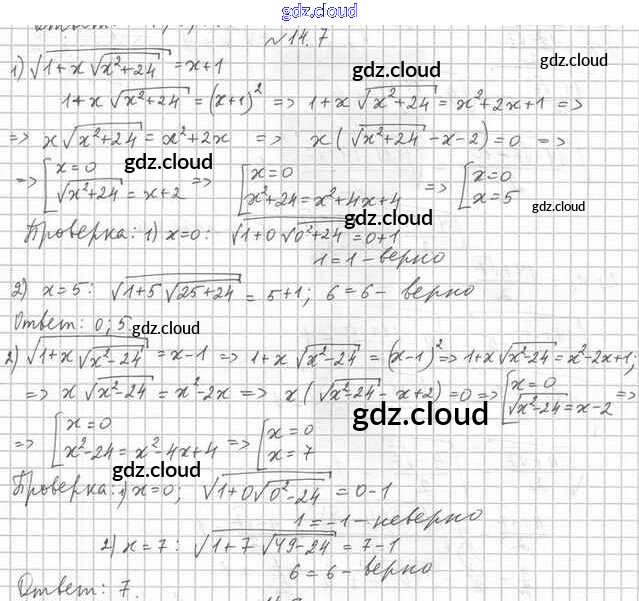 gdz.cloud
№14.7
1) √(1+x√(x²+24)) = x+1
gdz.cloud
gdz.cloud
1+x√(x²+24) = (x+1)² => 1+x√(x²+24) = x²+2x+1 =>
=> x√(x²+24) = x²+2x => x(√(x²+24) -x-2)=0 =>
gdz.cloud
=> [x=0 √(x²+24) = x+2 => [x=0 x²+24=x²+4x+4 => [x=0 x=5
gdz.cloud
gdz.cloud
Проверка: 1) x=0: √(1+0√(0²+24)) = 0+1
1=1 - верно
2) x=5: √(1+5√(25+24)) = 5+1; 6=6 - верно
Ответ: 0; 5.
gdz.cloud
2) √(1+x√(x²-24)) = x-1 => 1+x√(x²-24) = (x-1)² => 1+x√(x²-24) = x²-2x+1;
=> x√(x²-24) = x²-2x => x(√(x²-24) - x+2)=0 => [x=0 √(x²-24) = x-2 =>
gdz.cloud
=> [x=0 x²-24=x²-4x+4 => [x=0 x=7
gdz.cloud
Проверка: 1) x=0; √(1+0√(0²-24)) = 0-1
1=-1 - неверно
2) x=7: √(1+7√(49-24)) = 7-1
6=6 - верно
gdz.cloud
Ответ: 7.
gdz.cloud